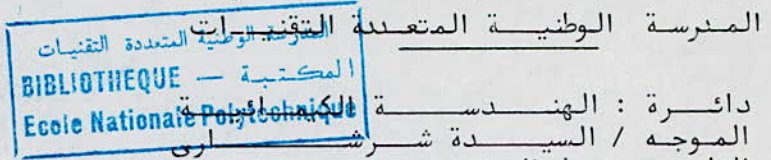 المدرسة الوطنية المتعددة التقنيات
المدرسة الوطنية المتعددة التقنيات
المكتبة — BIBLIOTHEQUE
Ecole Nationale Polytechnique
دائرة : الهندسة الكيميائية
الموجه / السيدة شرشاري